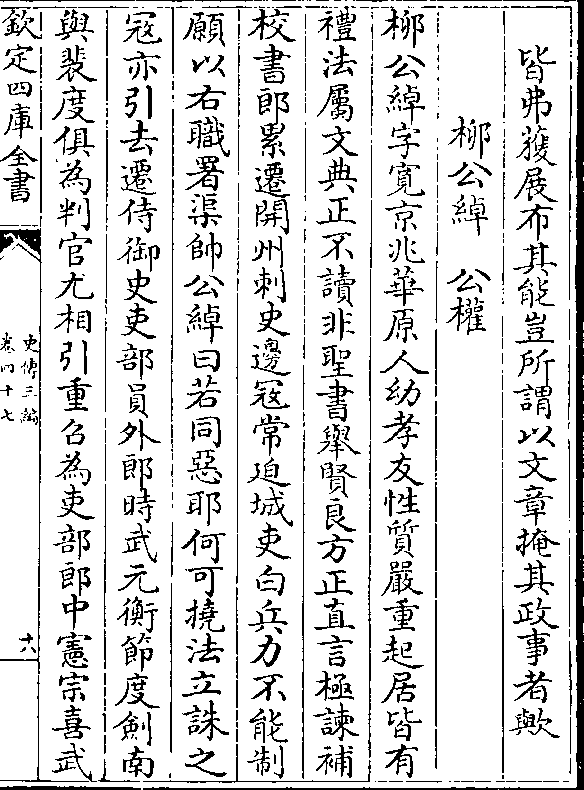 皆弗獲展布其能豈所謂以文章掩其政事者歟
柳公綽 公權
柳公綽字寛京兆華原人幼孝友性質嚴重起居皆有
禮法屬文典正不讀非聖書舉賢良方正直言極諫補
校書郎累遷開州刺史邊冦常迫城吏白兵力不能制
願以右職署渠帥公綽曰若同惡耶何可撓法立誅之
冦亦引去遷侍御史吏部員外郎時武元衡節度劍南
與裴度俱為判官尤相引重召為吏部郎中憲宗喜武
欽定四庫全書
史傳三編
卷四十七
六